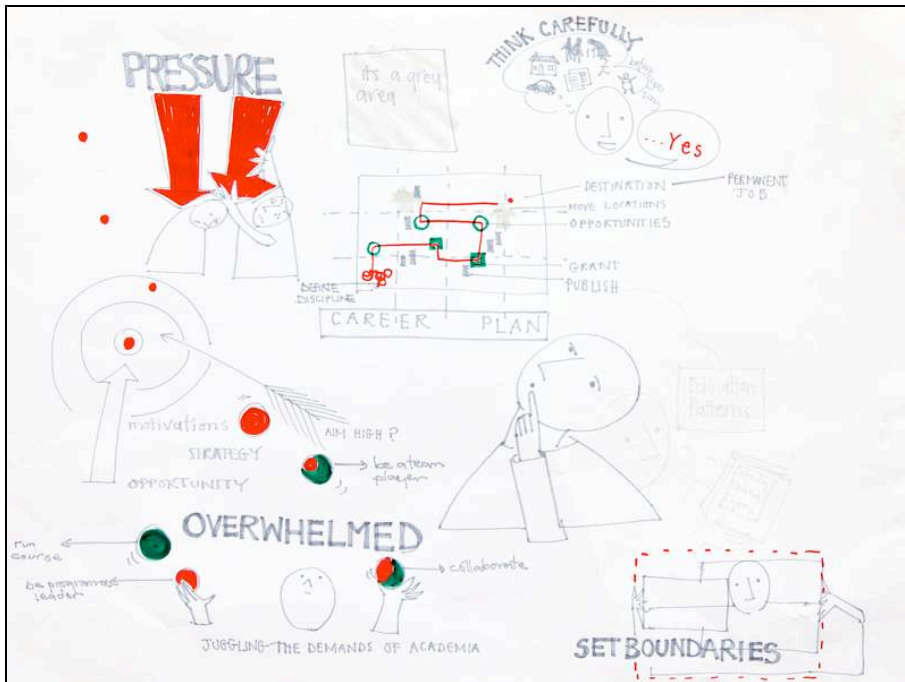 PRESSURE
its a grey
area
THINK CAREFULLY
before
you
say
£
...Yes
DESTINATION
PERMANENT
JOB
MOVE LOCATIONS
OPPORTUNITIES
GRANT
PUBLISH
DEFINE
DISCIPLINE
CAREER PLAN
motivations
STRATEGY
OPPORTUNITY
AIM HIGH?
be a team
player
Publication
Patterns
OVERWHELMED
run
course
be programme
leader
collaborate
JUGGLING THE DEMANDS OF ACADEMIA
SET BOUNDARIES